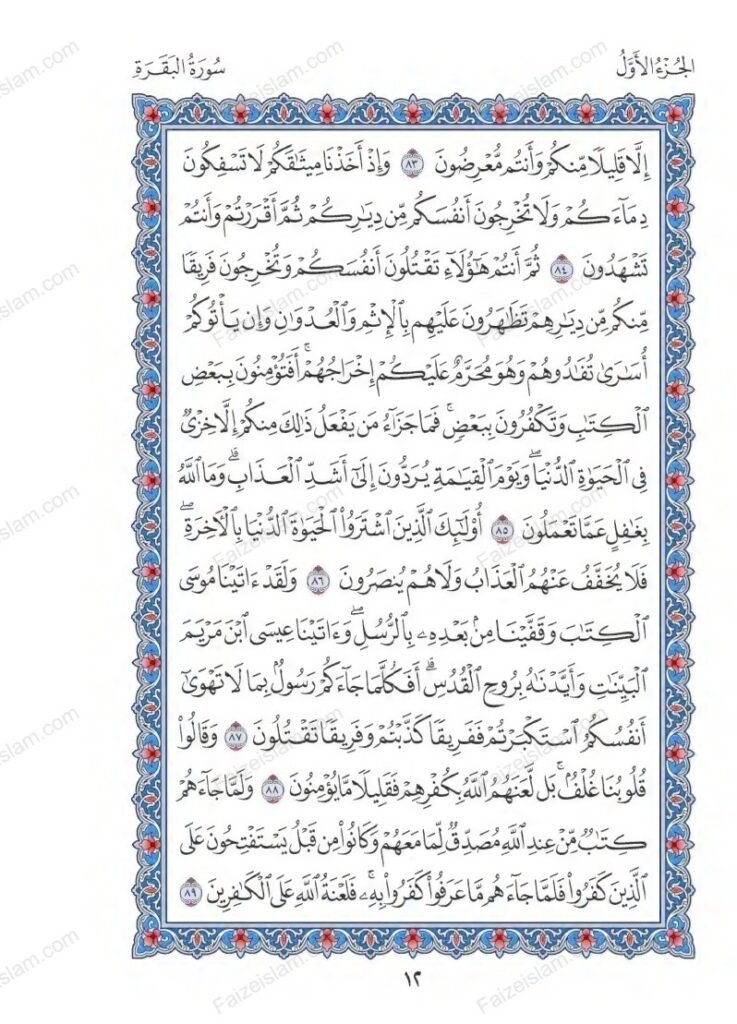 الجُزْءُ الأَوَّلُ
سُورَةُ البَقَرَةِ
إِلَّا قَلِيلًا مِّنكُمْ وَأَنتُم مُّعْرِضُونَ ٨٣ وَإِذْ أَخَذْنَا مِيثَٰقَكُمْ لَا تَسْفِكُونَ
دِمَآءَكُمْ وَلَا تُخْرِجُونَ أَنفُسَكُم مِّن دِيَٰرِكُمْ ثُمَّ أَقْرَرْتُمْ وَأَنتُمْ
تَشْهَدُونَ ٨٤ ثُمَّ أَنتُمْ هَٰٓؤُلَآءِ تَقْتُلُونَ أَنفُسَكُمْ وَتُخْرِجُونَ فَرِيقًا
مِّنكُم مِّن دِيَٰرِهِمْ تَظَٰهَرُونَ عَلَيْهِم بِٱلْإِثْمِ وَٱلْعُدْوَٰنِ وَإِن يَأْتُوكُمْ
أُسَٰرَىٰ تُفَٰدُوهُمْ وَهُوَ مُحَرَّمٌ عَلَيْكُمْ إِخْرَاجُهُمْ ۚ أَفَتُؤْمِنُونَ بِبَعْضِ
ٱلْكِتَٰبِ وَتَكْفُرُونَ بِبَعْضٍ ۚ فَمَا جَزَآءُ مَن يَفْعَلُ ذَٰلِكَ مِنكُمْ إِلَّا خِزْىٌ
فِى ٱلْحَيَوٰةِ ٱلدُّنْيَا ۖ وَيَوْمَ ٱلْقِيَٰمَةِ يُرَدُّونَ إِلَىٰٓ أَشَدِّ ٱلْعَذَابِ ۗ وَمَا ٱللَّهُ
بِغَٰفِلٍ عَمَّا تَعْمَلُونَ ٨٥ أُو۟لَٰٓئِكَ ٱلَّذِينَ ٱشْتَرَوُا۟ ٱلْحَيَوٰةَ ٱلدُّنْيَا بِٱلْءَاخِرَةِ ۖ
فَلَا يُخَفَّفُ عَنْهُمُ ٱلْعَذَابُ وَلَا هُمْ يُنصَرُونَ ٨٦ وَلَقَدْ ءَاتَيْنَا مُوسَى
ٱلْكِتَٰبَ وَقَفَّيْنَا مِنۢ بَعْدِهِۦ بِٱلرُّسُلِ ۖ وَءَاتَيْنَا عِيسَى ٱبْنَ مَرْيَمَ
ٱلْبَيِّنَٰتِ وَأَيَّدْنَٰهُ بِرُوحِ ٱلْقُدُسِ ۗ أَفَكُلَّمَا جَآءَكُمْ رَسُولٌۢ بِمَا لَا تَهْوَىٰٓ
أَنفُسُكُمُ ٱسْتَكْبَرْتُمْ فَفَرِيقًا كَذَّبْتُمْ وَفَرِيقًا تَقْتُلُونَ ٨٧ وَقَالُوا۟
قُلُوبُنَا غُلْفٌۢ ۚ بَل لَّعَنَهُمُ ٱللَّهُ بِكُفْرِهِمْ فَقَلِيلًا مَّا يُؤْمِنُونَ ٨٨ وَلَمَّا جَآءَهُمْ
كِتَٰبٌ مِّنْ عِندِ ٱللَّهِ مُصَدِّقٌ لِّمَا مَعَهُمْ وَكَانُوا۟ مِن قَبْلُ يَسْتَفْتِحُونَ عَلَى
ٱلَّذِينَ كَفَرُوا۟ فَلَمَّا جَآءَهُم مَّا عَرَفُوا۟ كَفَرُوا۟ بِهِۦ ۚ فَلَعْنَةُ ٱللَّهِ عَلَى ٱلْكَٰفِرِينَ ٨٩
١٢
Faizeislam.com